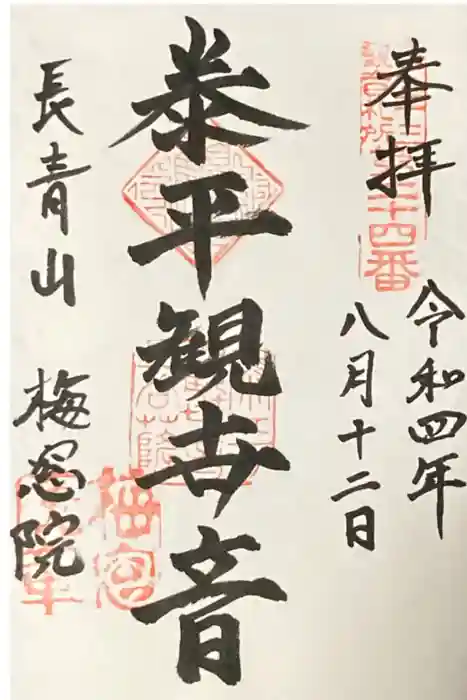 奉拝
令和四年
八月十二日
泰平観世音
長青山 梅窓院
二十四番